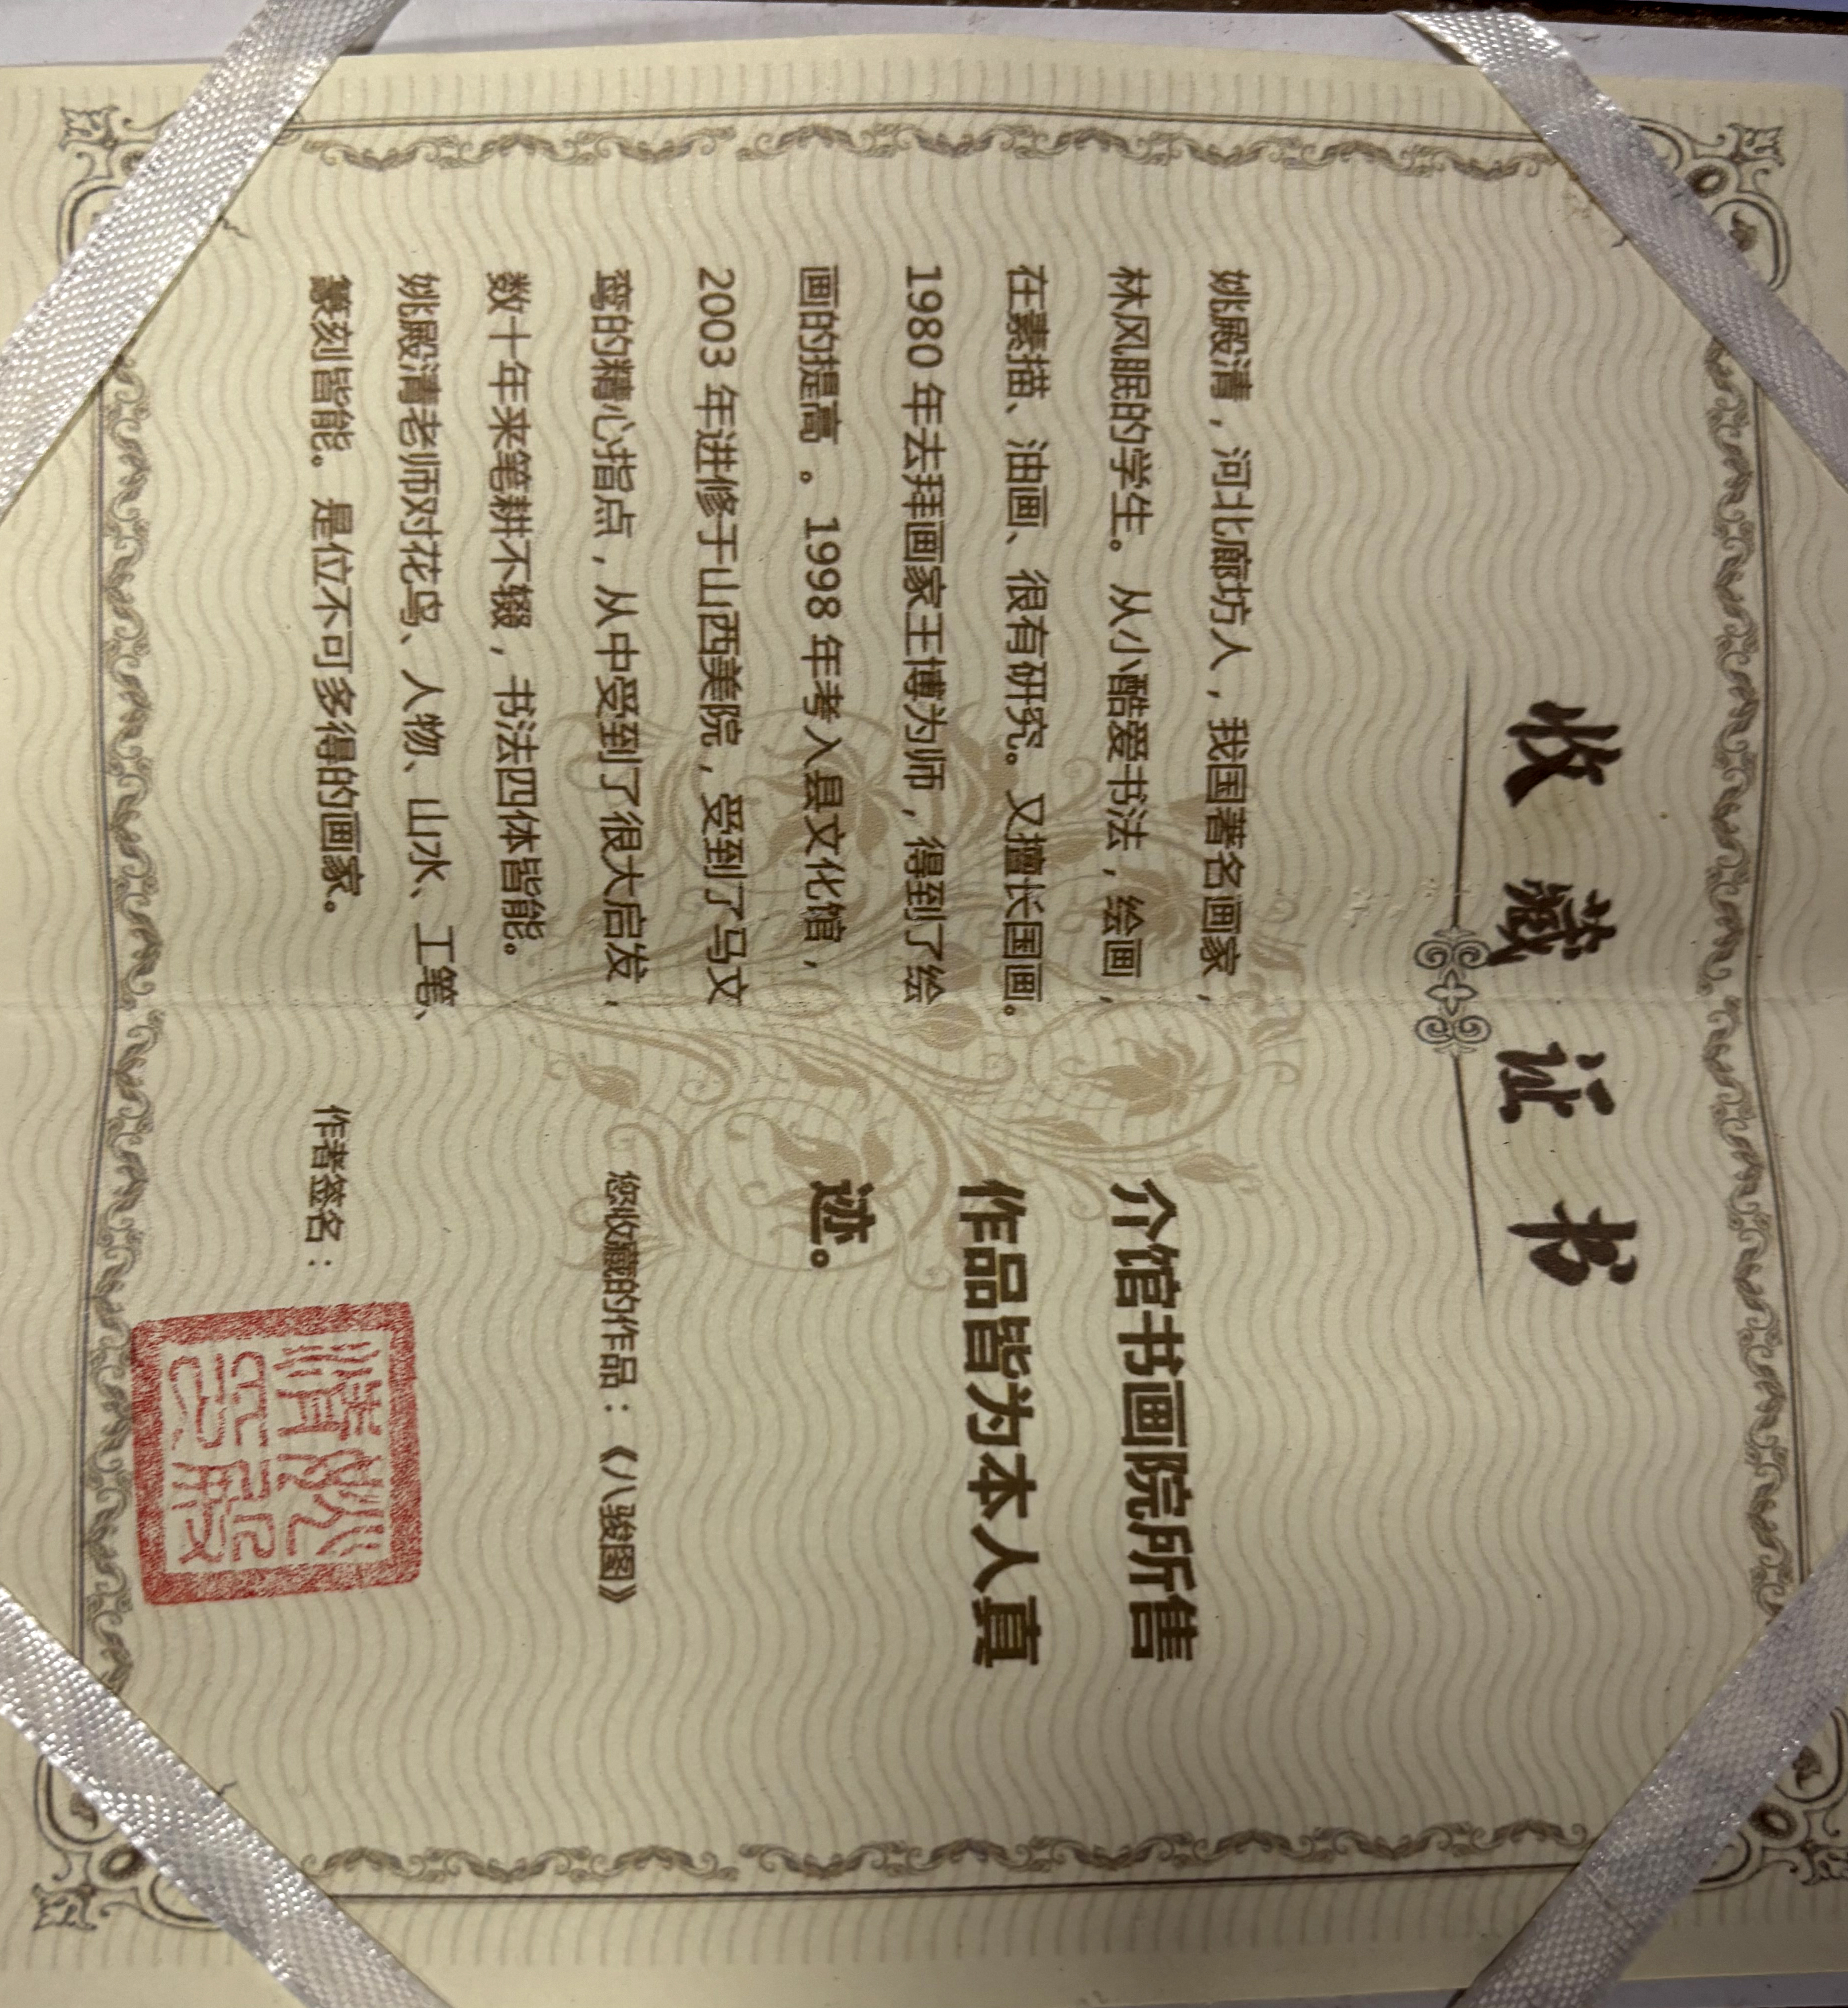 收藏证书
姚殿清，河北廊坊人，我国著名画家，
林风眠的学生。从小酷爱书法，绘画，
在素描、油画、很有研究。又擅长国画。
1980 年去拜画家王博为师，得到了绘
画的提高 。1998 年考入县文化馆，
2003 年进修于山西美院，受到了马文
骞的精心指点，从中受到了很大启发，
数十年来笔耕不辍，书法四体皆能。
姚殿清老师对花鸟、人物、山水、工笔、
篆刻皆能。是位不可多得的画家。
介馆书画院所售
作品皆为本人真
迹。
您收藏的作品：《八骏图》
作者签名：